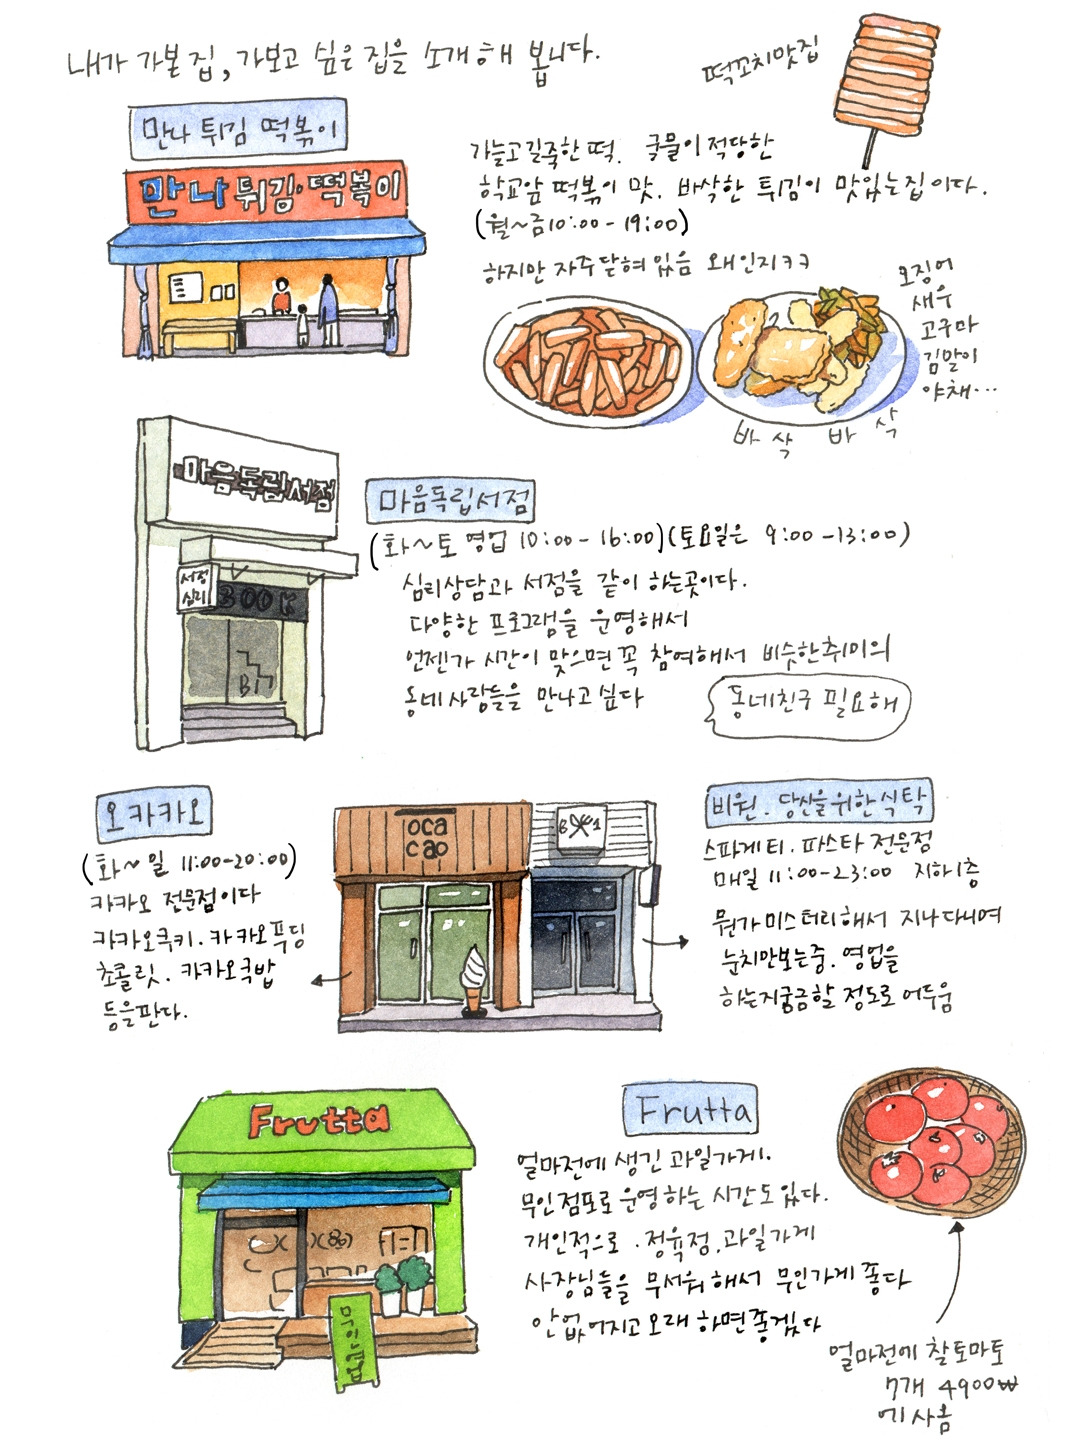 내가 가본 집, 가보고 싶은 집을 소개해 봅니다.
떡꼬치맛집
만나 튀김 떡볶이
만나 튀김·떡볶이
가늘고길죽한 떡. 국물이 적당한
학교앞 떡볶이 맛. 바삭한 튀김이 맛있는집이다.
(월~금10:00-19:00)
하지만 자주닫혀있음 왜인지ㅋㅋ
오징어
새우
고구마
김말이
야채...
바삭 바삭
마음독립서점
서점
심리
BOOK
마음독립서점
(화~토 영업 10:00-16:00)(토요일은 9:00-13:00)
심리상담과 서점을 같이 하는곳이다.
다양한 프로그램을 운영해서
언젠가 시간이 맞으면 꼭 참여해서 비슷한취미의
동네사람들을 만나고싶다
동네친구 필요해
오카카오
(화~일 11:00-20:00)
카카오 전문점이다
카카오쿠키. 카카오푸딩
초콜릿. 카카오국밥
등을판다.
oca
cao
B 1
비원. 당신을위한식탁
스파게티. 파스타 전문점
매일 11:00-23:00 지하1층
뭔가미스터리해서 지나다니며
눈치만보는중. 영업을
하는지궁금할 정도로 어두움
Frutta
무인영업
Frutta
얼마전에 생긴 과일가게.
무인점포로 운영하는 시간도있다.
개인적으로 . 정육점. 과일가게
사장님들을 무서워해서 무인가게 좋다
안없어지고오래 하면좋겠다
얼마전에 찰토마토
7개 4900₩
에사옴